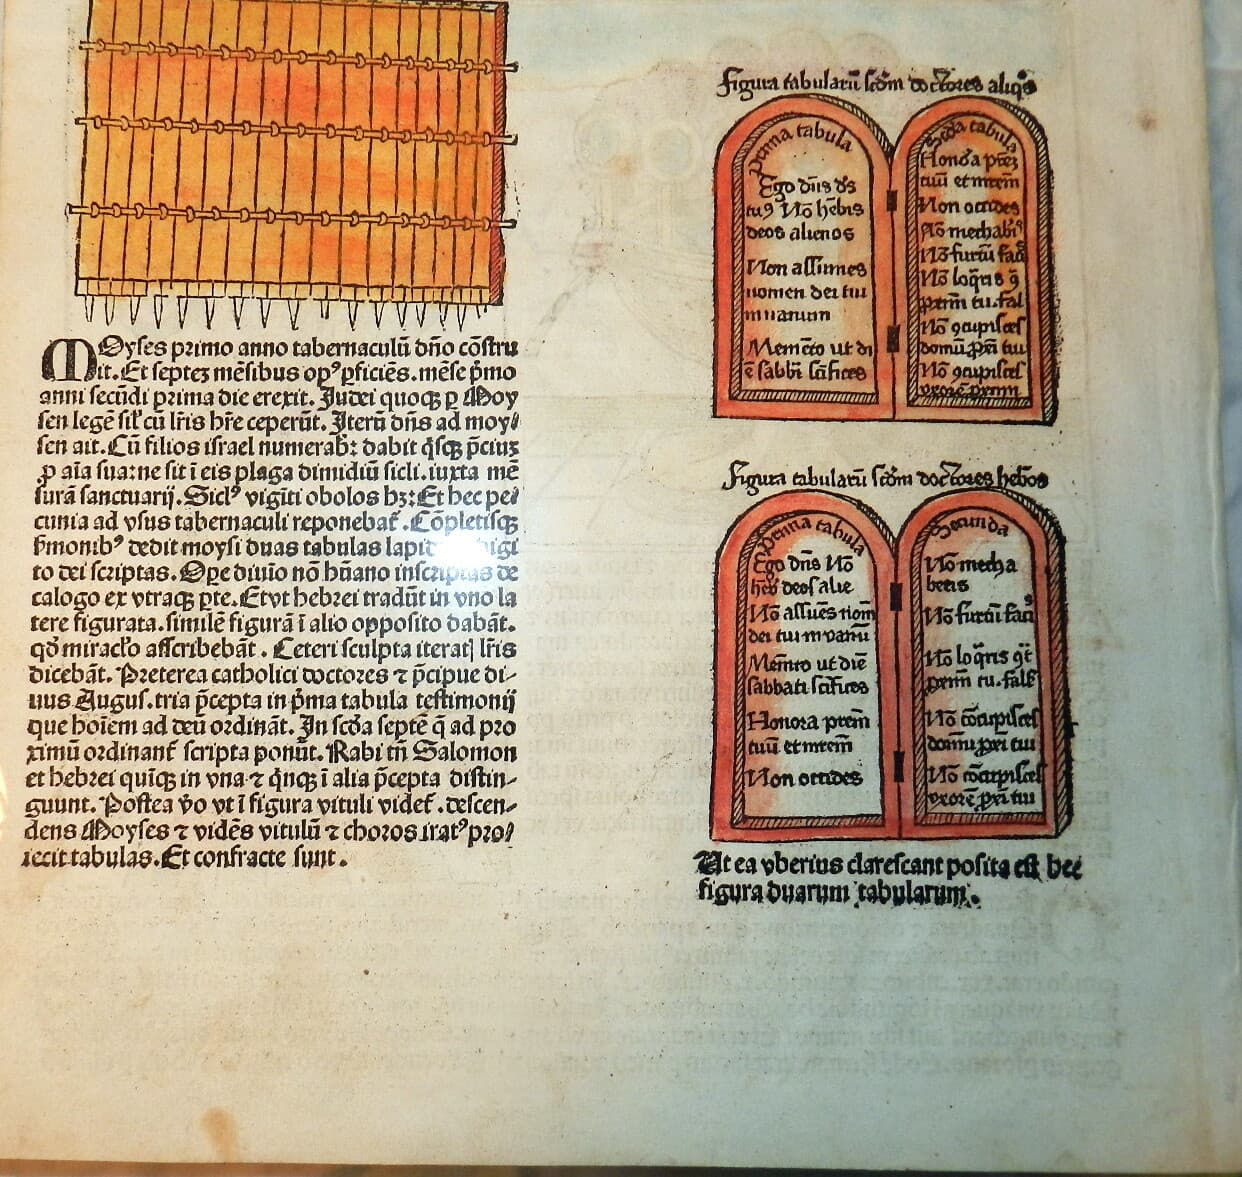 Moyses primo anno tabernaculū dño cōstru
it. Et septeʒ mēsibus opꝰ ꝑficiēs. mēse p̄mo
anni secūdi prima die erexit. Iudei quoqꝫ ꝑ Moy
sen legē sil' cū lr̄is hr̄e ceperūt. Iterū dñs ad moy⸗
sen ait. Cū filios israel numerab̄: dabit q̄sqꝫ p̄ciuʒ
ꝓ aīa sua: ne sit ī eis plaga dimidiū sicli. iuxta mē
surā sanctuarij. Siclꝰ vigīti obolos hʒ: Et hec pe⸗
cunia ad vsus tabernaculi reponebat̄. Cōpletisqꝫ
s̄monibꝰ dedit moysi duas tabulas digi
to dei scriptas. Oꝑe diuīo nō hūano inscriptas de
calogo ex vtraqꝫ ꝑte. Et vt hebrei tradūt in vno la
tere figurata. similē figurā ī alio opposito dabāt.
qd̄ miracl'o asscribebāt. Ceteri sculpta iteratꝭ lr̄is
dicebāt. Preterea catholici doctores ⁊ p̄cipue di⸗
uus Augus. tria p̄cepta in p̄ma tabula testimonij
que hoīem ad deū ordināt. In scd̄a septē q̄ ad pro
ximū ordinant̄ scripta ponūt. Rabi tn̄ Salomon
et hebrei quīqꝫ in vna ⁊ qnqꝫ ī alia p̄cepta distin⸗
guunt. Postea v̄o vt ī figura vituli videt̄. descen⸗
dens Moyses ⁊ vidēs vitulū ⁊ choros iratꝰ pro⸗
iecit tabulas. Et confracte sunt.
Figura tabularū scd̄m doctores aliqͦs
Prima tabula
Ego dñs ds̄
tuꝰ Nō hēbis
deos alienos
Non assumes
nomen dei tui
in uanum
Memēto ut di
ē sabbi scīfices
Scd̄a tabula
Honōa pr̄eʒ
tuū et mr̄em
Non occides
Nō mechabꝭ
Nō furtū faciꝭ
Nō loq̄ris ꝯ̄
ꝓximū tu. fal
Nō ꝯcupisces
domū ꝓxi tui
Nō ꝯcupisces
vxorē ꝓximi
Figura tabularū scd̄m doctores hebͦs
Prima tabula
Ego dñs Nō
heb̄ deos alie
Nō assues nom
dei tui in vanū
Memēto ut diē
sabbati scīfices
Honora prēm
tuū et mr̄em
Non occides
Secunda
Nō mecha
beris
Nō furtū faciꝰ
Nō loq̄ris ꝯt̄
ꝓximū tu. fals̄
Nō cōcupisces
domū ꝓxi tui
Nō cōcupisces
vxorē ꝓxi tui
Ut ea vberius clarescant posita est hec
figura duarum tabularum.